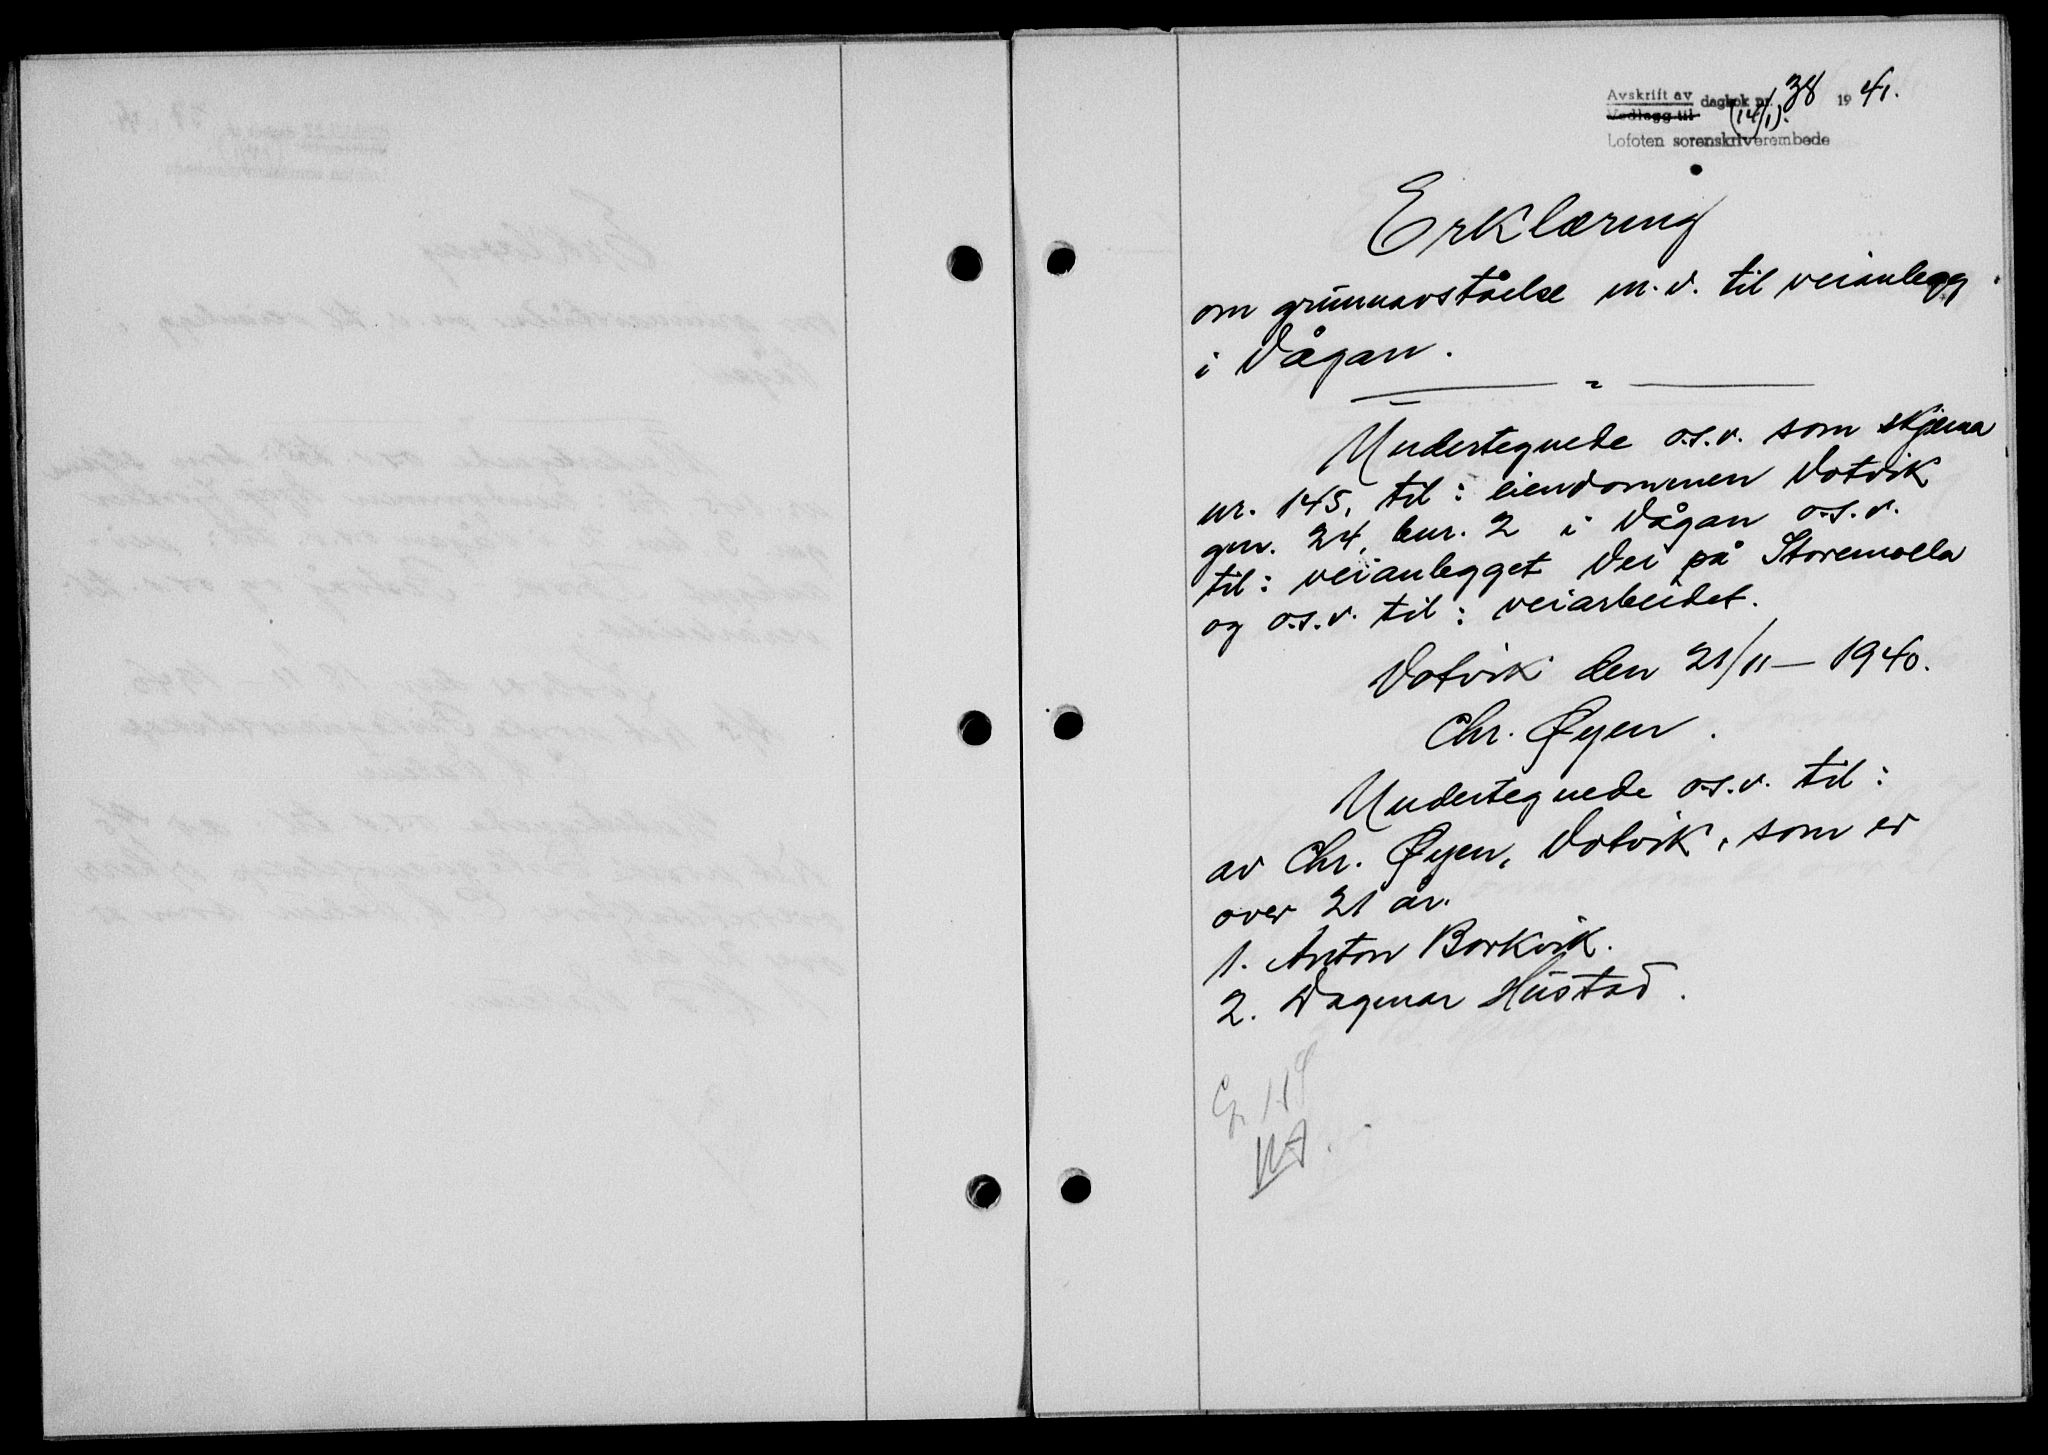 Avskrift av dagbok nr. 38 1941.
Vedlegg til (14/1).
Lofoten sorenskriverembede
Erklæring
om grunnavståelse m.v. til veianlegg
i Vågan.
Undertegnede o.s.v. som skjema
nr. 145, til: eiendommen Votvik
gnr. 24, bnr. 2 i Vågan o.s.v.
til: veianlegget Vei på Storemolla
og o.s.v. til: veiarbeidet.
Votvik den 21/11 – 1940.
Chr. Øyen.
Undertegnede o.s.v. til:
av Chr. Øyen, Votvik, som er
over 21 år.
1. Anton Borkvik.
2. Dagmar Hustad.